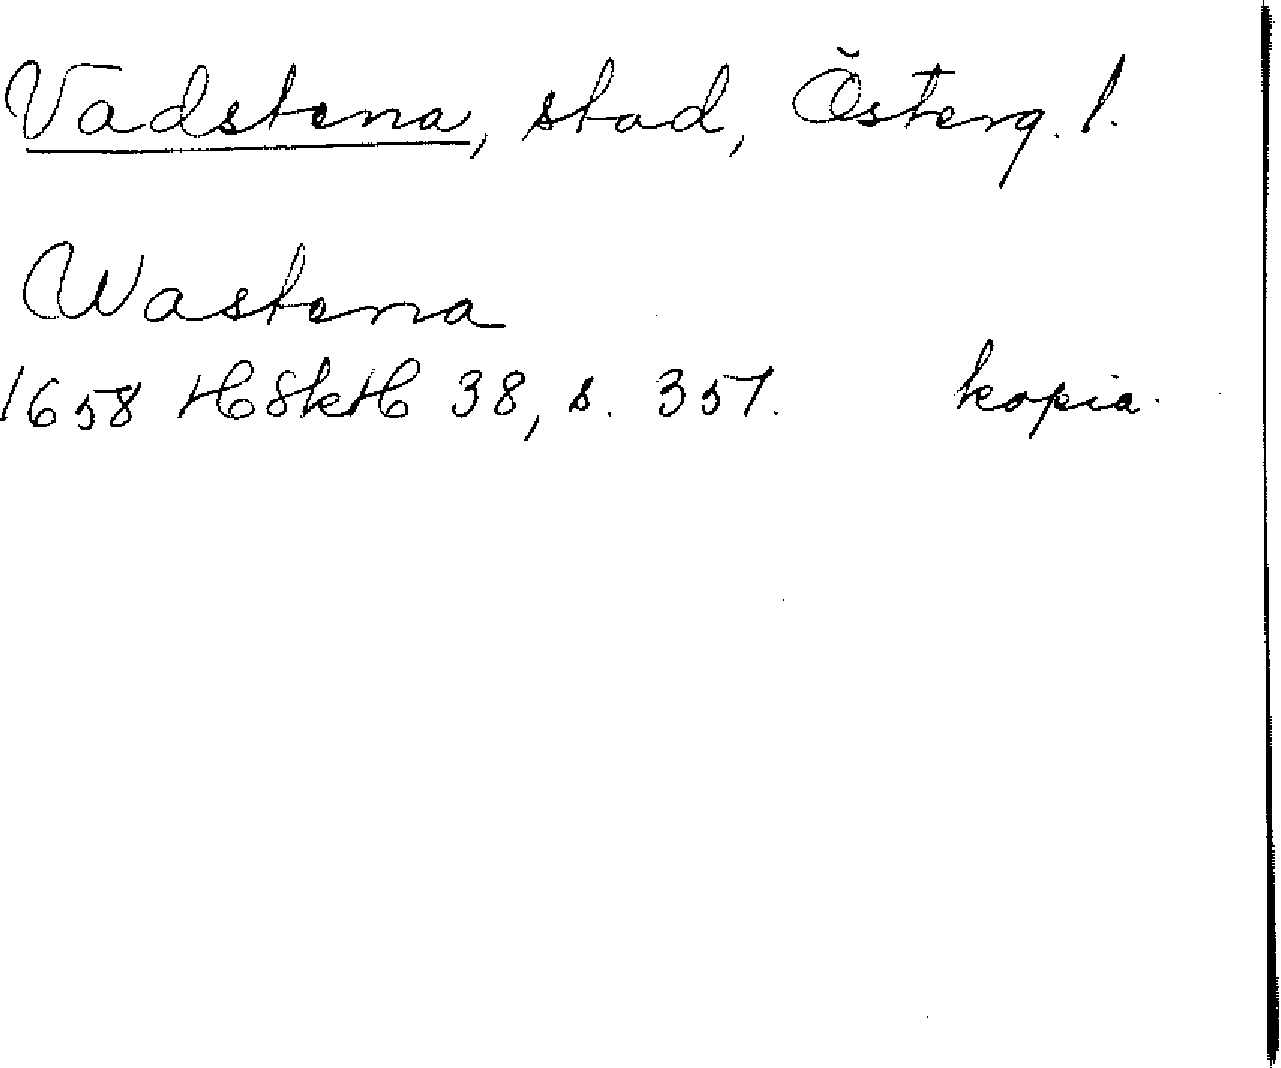 Vadstena, stad, Österg. l.
Wastena
1658 HSkH 38, s. 357. kopia.